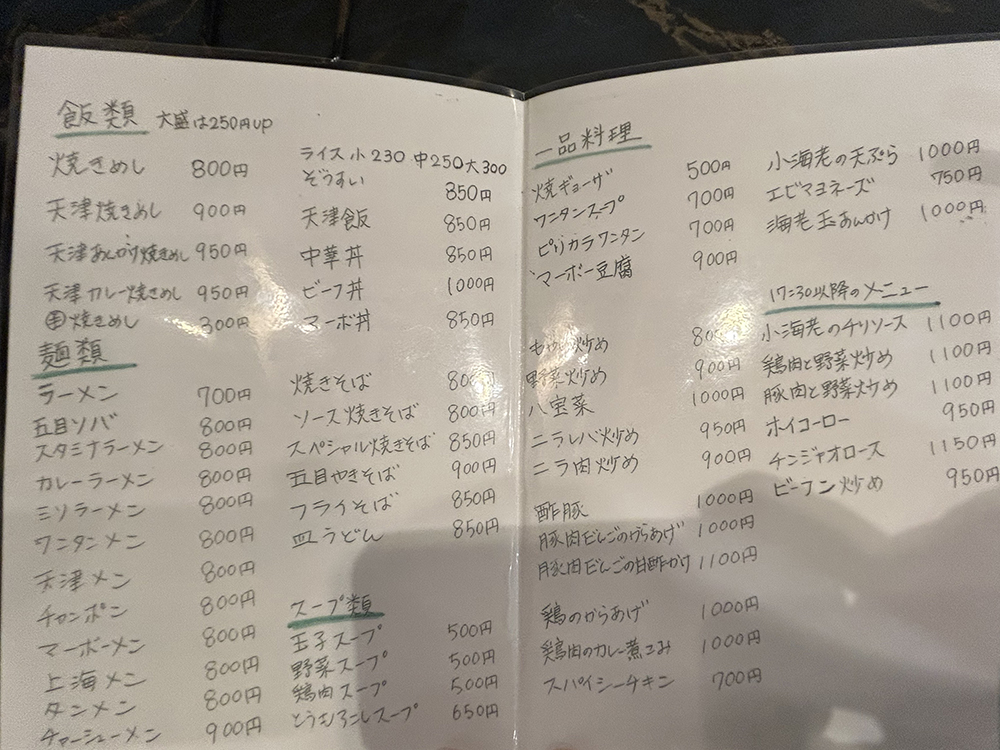 飯類 大盛は250円up
焼きめし 800円
天津焼きめし 900円
天津あんかけ焼きめし 950円
天津カレー焼きめし 950円
焼きめし 300円
麺類
ラーメン 700円
五目ソバ 800円
スタミナラーメン 800円
カレーラーメン 800円
ミソラーメン 800円
ワニタンメン 800円
天津メン 800円
チャンポン 800円
マーボーメン 800円
上海メン 800円
タンメン 800円
チャーシューメン 900円
ライス小230 中250大300
ぞうすい 850円
天津飯 850円
中華丼 850円
ビーフ丼 1000円
マーボ丼 850円
焼きそば 800円
ソース焼きそば 800円
スペシャル焼きそば 850円
五目やきそば 900円
フライそば 850円
皿うどん 850円
スープ類
玉子スープ 500円
野菜スープ 500円
鶏肉スープ 500円
とうもろこしスープ 650円
一品料理
焼ギョーザ 500円
ワニタンスープ 700円
ピリカラワンタン 700円
マーボー豆腐 900円
もやし炒め 800円
野菜炒め 900円
八宝菜 1000円
ニラレバ炒め 950円
ニラ肉炒め 900円
酢豚 1000円
豚肉だんごのからあげ 1000円
豚肉だんごの甘酢かけ 1100円
鶏のからあげ 1000円
鶏肉のカレー煮こみ 1000円
スパイシーチキン 700円
小海老の天ぷら 1000円
エビマヨネーズ 750円
海老玉あんかけ 1000円
17:30以降のメニュー
小海老のチリソース 1100円
鶏肉と野菜炒め 1100円
豚肉と野菜炒め 1100円
ホイコーロー 950円
チンジャオロース 1150円
ビーフン炒め 950円